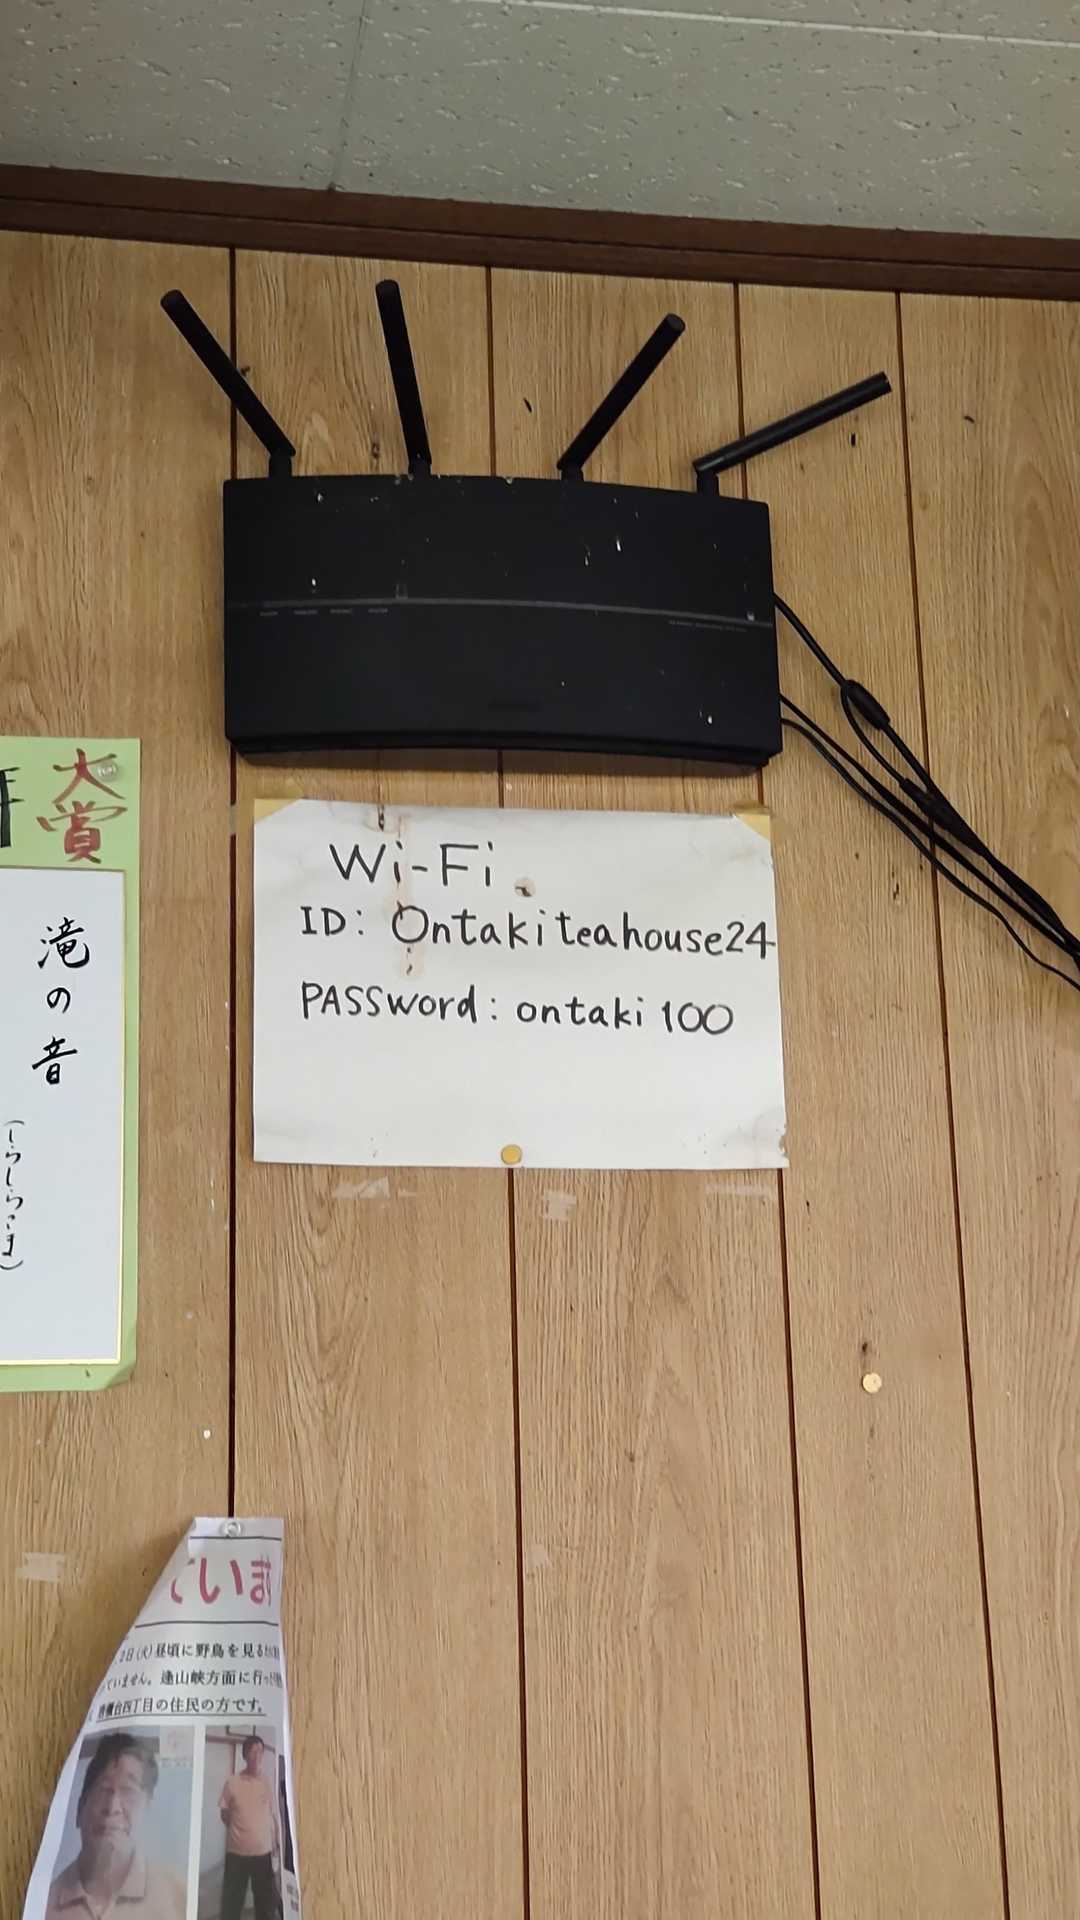 Wi-Fi
ID: Ontakiteahouse24
PASSword: ontaki100
大賞
滝の音
(しらしらこま)
ていま
2日(火)昼頃に野鳥を見る
ていません。逢山峡方面に行っ
台四丁目の住民の方です。